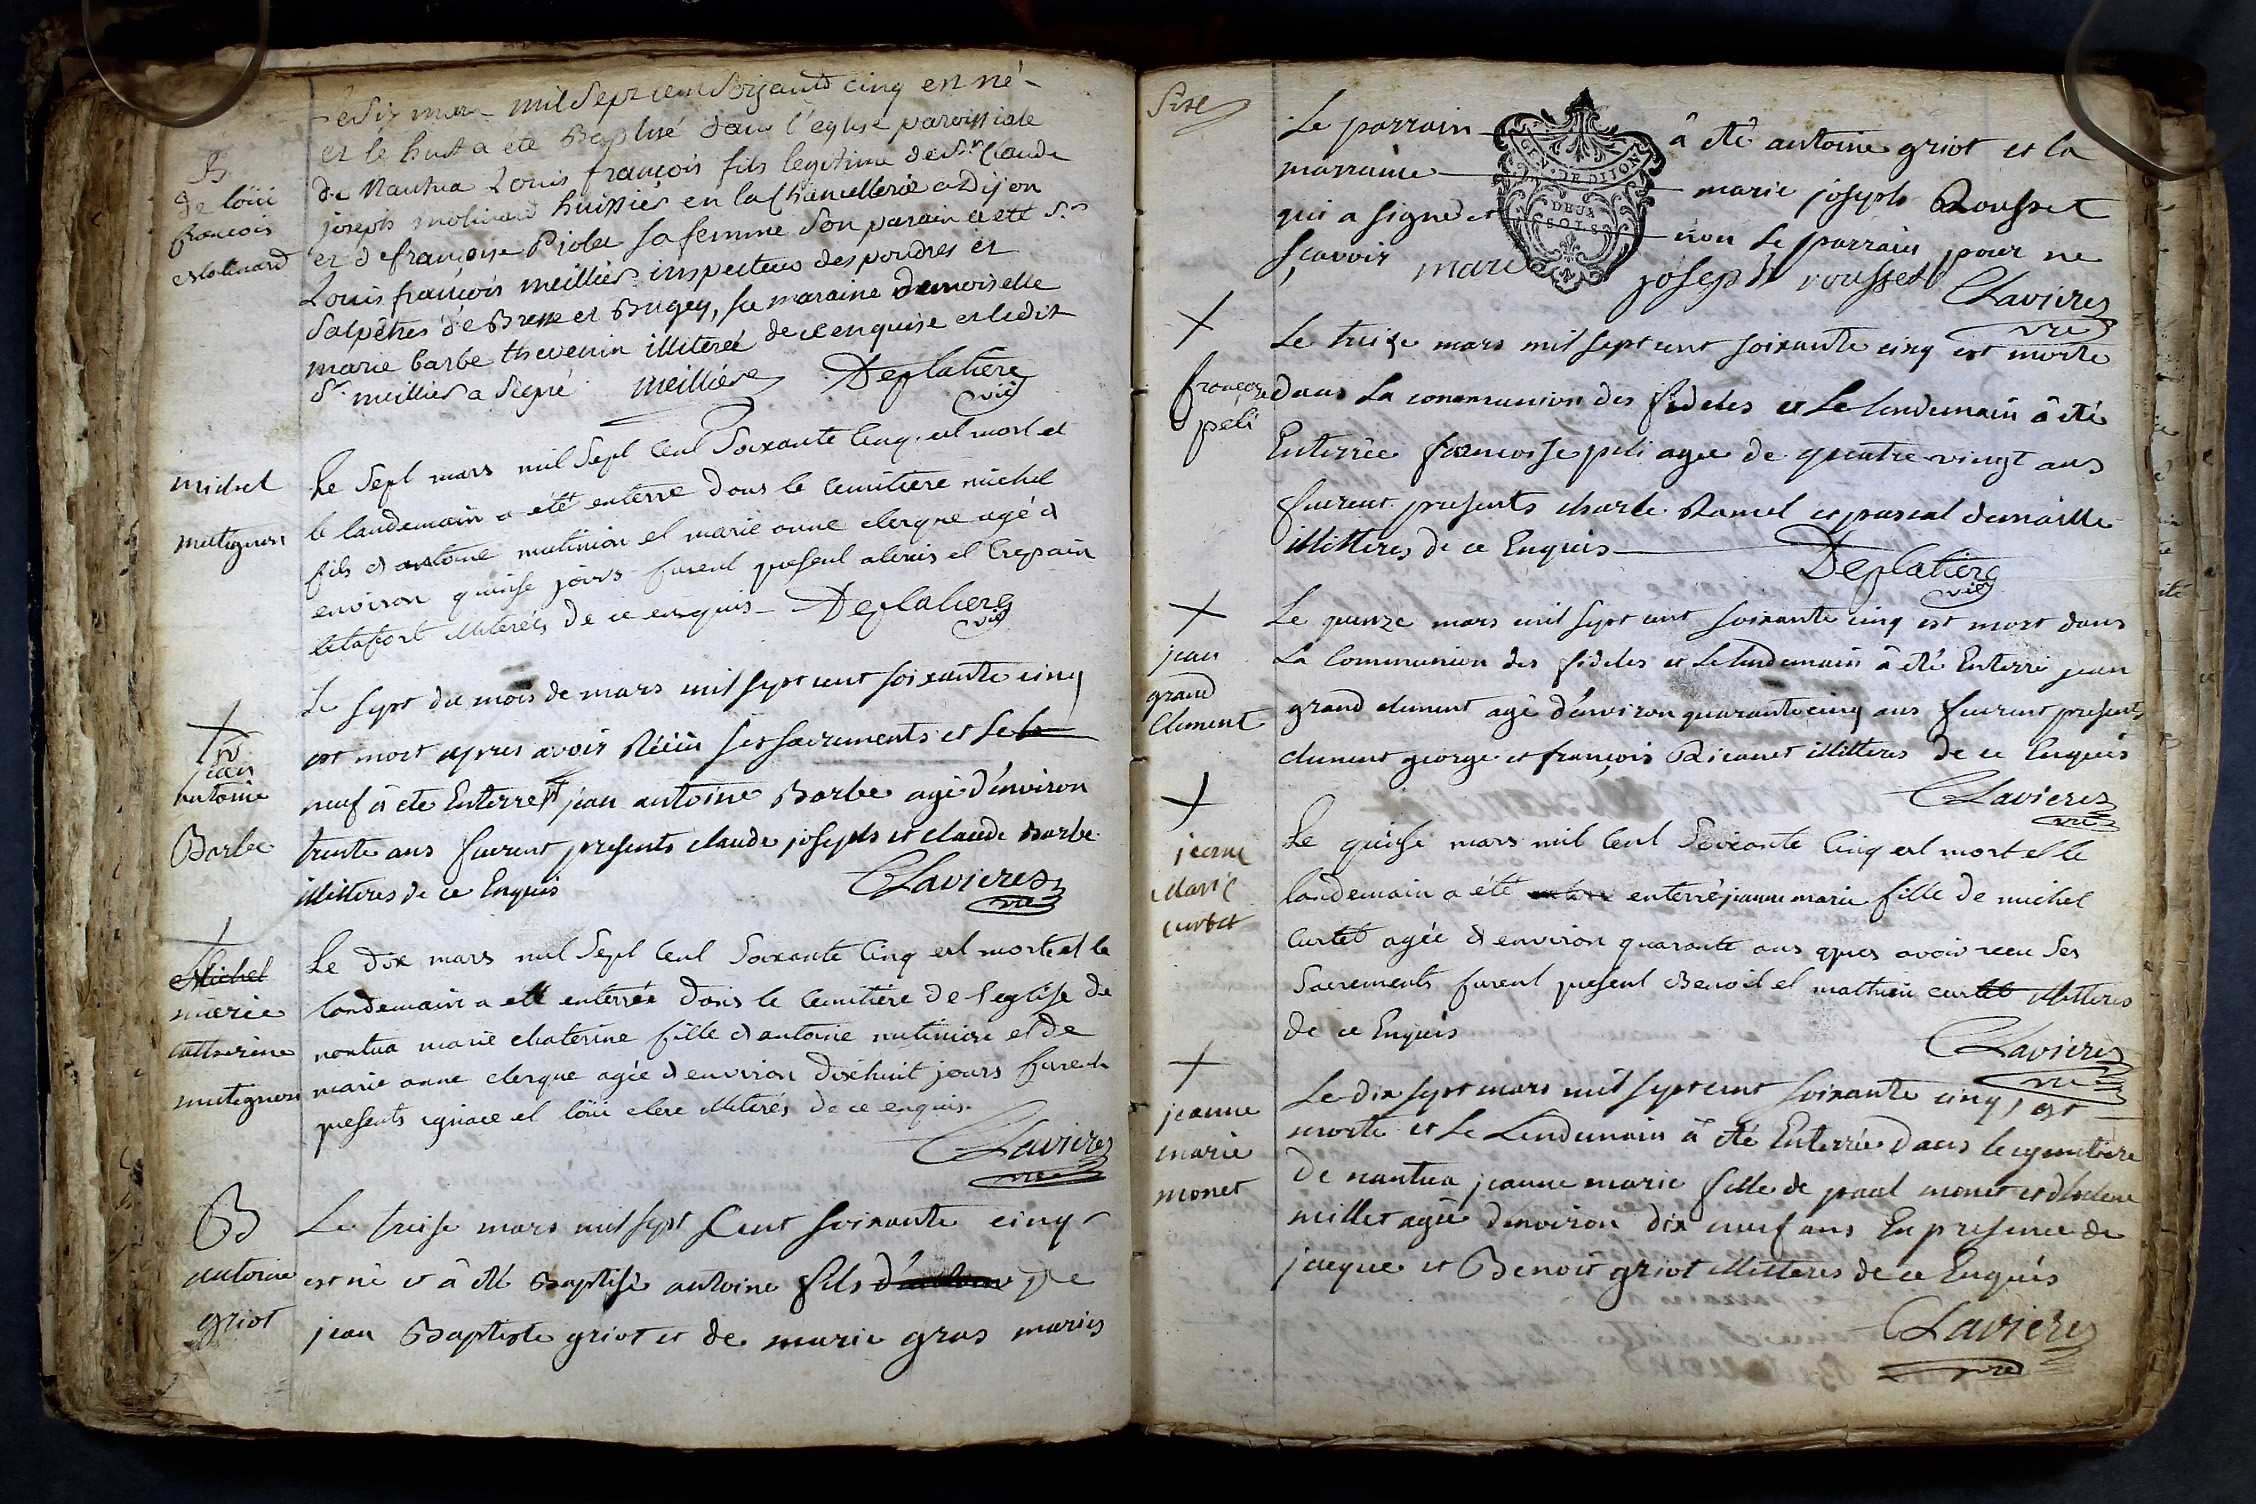 B
de loüi
francois
molinard
Le Six mars mil Sept cent Soixante cinq est né
et le huit a été Baptisé dans l'église paroissiale
de Nantua Louis françois fils legitime de Sr. Claude
joseph molinard huissier en la Chancellerie a Dijon
et de françoise Piolet sa femme Son parain a eté Sr.
Louis françois meillier inspecteur des poudres et
Salpêtres de Bresse et Bugey, sa maraine demoiselle
marie barbe thevenin illiterée de ce enquise et ledit
Sr. meillier a Signé meilliere Deplatiere
vic
michel
mutignon
Le Sept mars mil Sept Cent Soixante Cinq est mort et
le landemain a été enterré dans le Cemitiere michel
fils d antoine mutinion et marie anne clerque agé d
environ quinse jours furent present alexis et Crepain
letafort illiterés de ce enquis Deplatiere
vic
jean
antoine
Barbe
Le sept du mois de mars mil sept cent soixante cinq
est mort apres avoir Réçû ses sacrements et le
neuf à eté Enterré jean antoine Barbe agé d'environ
trente ans furent presents claude joseph et claude Barbe
illitteres de ce Enquis CLavieres
vre
Michel
marie
catherine
mutignon
Le dix mars mil Sept Cent Soixante Cinq est morte et le
landemain a eté enterrée dans le Cemitiere de l'eglise de
nantua marie chaterine fille d antoine mutinion et de
marie anne clerque agée d environ dixhuit jours furent
presents ignace et loüi clere illiterés de ce enquis.
CLavieres
vre
B
antoine
griot
Le treise mars mil sept Cent soixante cinq
est né et â été Baptisé antoine fils d'antoine De
jean Baptiste griot et de marie gras mariés
Le parrain â été antoine griot et la
marraine marie joseph Rousset
qui a signé et non Le parrain, pour ne
sçavoir marie joseph rousset
CLavieres
vre
GEN. DE DIJON
DEUX
SOLS
françoise
peli
Le treize mars mil sept cent soixante cinq est morte
dans La communion des fideles et Le lendemain â été
Enterrée francoise peli agée de quatre vingt ans
furent presents charle Ramel et pascal demaille
illitteres de ce Enquis
Deplatiere
vic
jean
grand
Clement
Le quinze mars mil sept cent soixante cinq est mort dans
La Communion des fideles et Le lendemain â été Enterré jean
grand clement agé d'environ quarante cinq ans furent presents
clement george et françois Ricanet illitteres de ce Enquis
CLavieres
vre
jeanne
Marie
curtet
Le quinse mars mil Cent Soixante Cinq est mort et le
landemain a été enterré jeanne marie fille de michel
Curtet agée d environ quarante ans apres avoir recu Ses
Sacrements furent present Benoit et mathieu curtet illitteres
de ce Enquis
CLavieres
vre
jeanne
marie
monet
Le dix sept mars mil sept cent soixante cinq, est
morte et Le Lendemain â été Enterrée dans le cymitiere
de nantua jeanne marie fille de paul monet et d'helene
millet agée d'environ dix neuf ans En presence de
jacque et Benoit griot illitteres de ce Enquis
CLavieres
vre